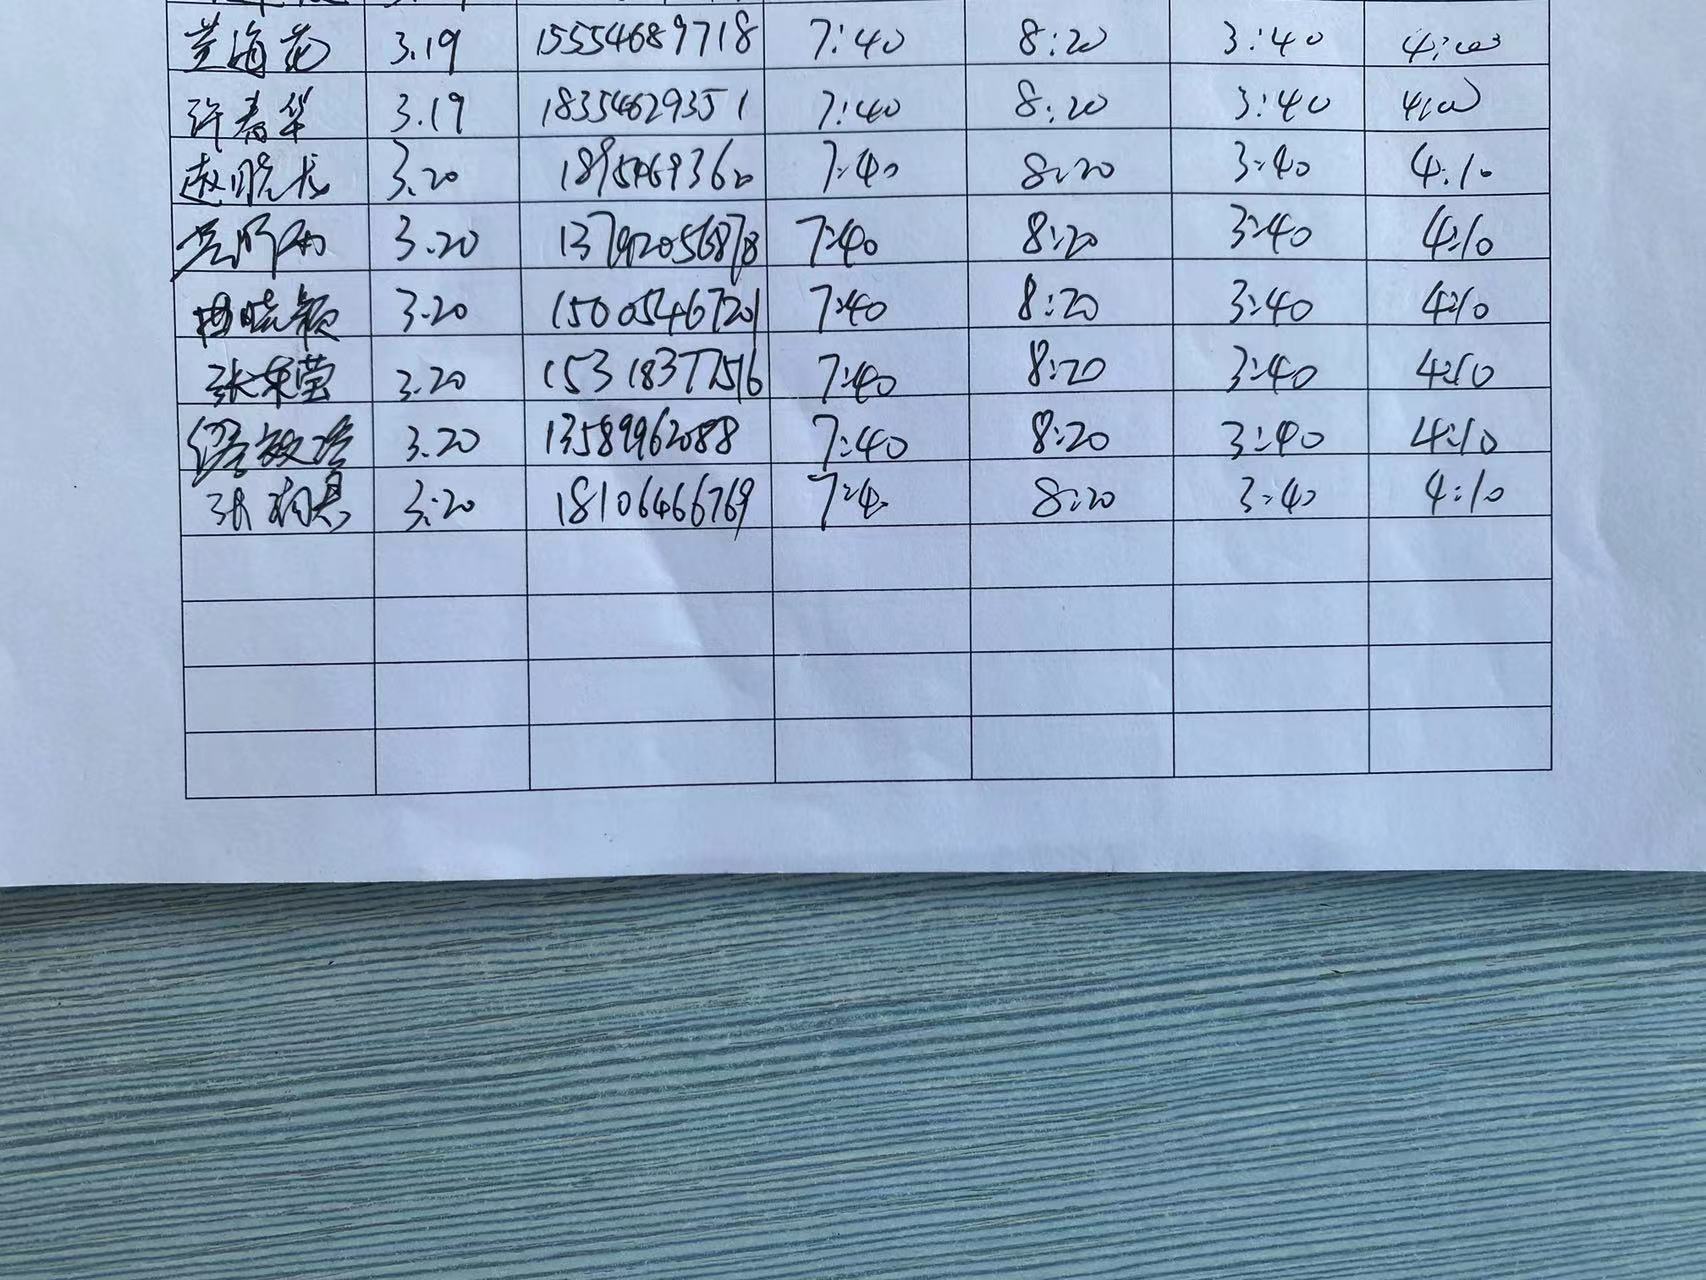 黄海花 3.19 15554689718 7:40 8:20 3:40 4:00
许春华 3.19 18354629351 7:40 8:20 3:40 4:00
赵晓龙 3.20 7:40 8:20 3:40 4:10
3.20 7:40 8:20 3:40 4:10
曲晓颖 3.20 15005467201 7:40 8:20 3:40 4:10
张荣莹 3.20 15318377516 7:40 8:20 3:40 4:10
3.20 13589962088 7:40 8:20 3:40 4:10
3.20 18106466769 7:40 8:20 3:40 4:10